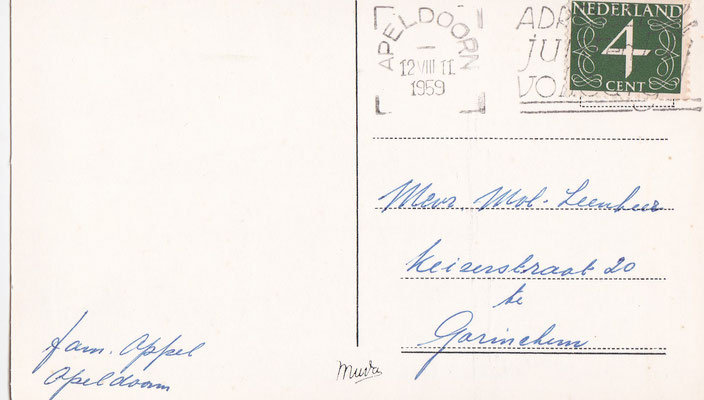 APELDOORN
12 VIII 11
1959
NEDERLAND
4
CENT
Mevr Mol-Leenheer
Keizerstraat 20
te
Gorinchem
fam. Appel
Apeldoorn